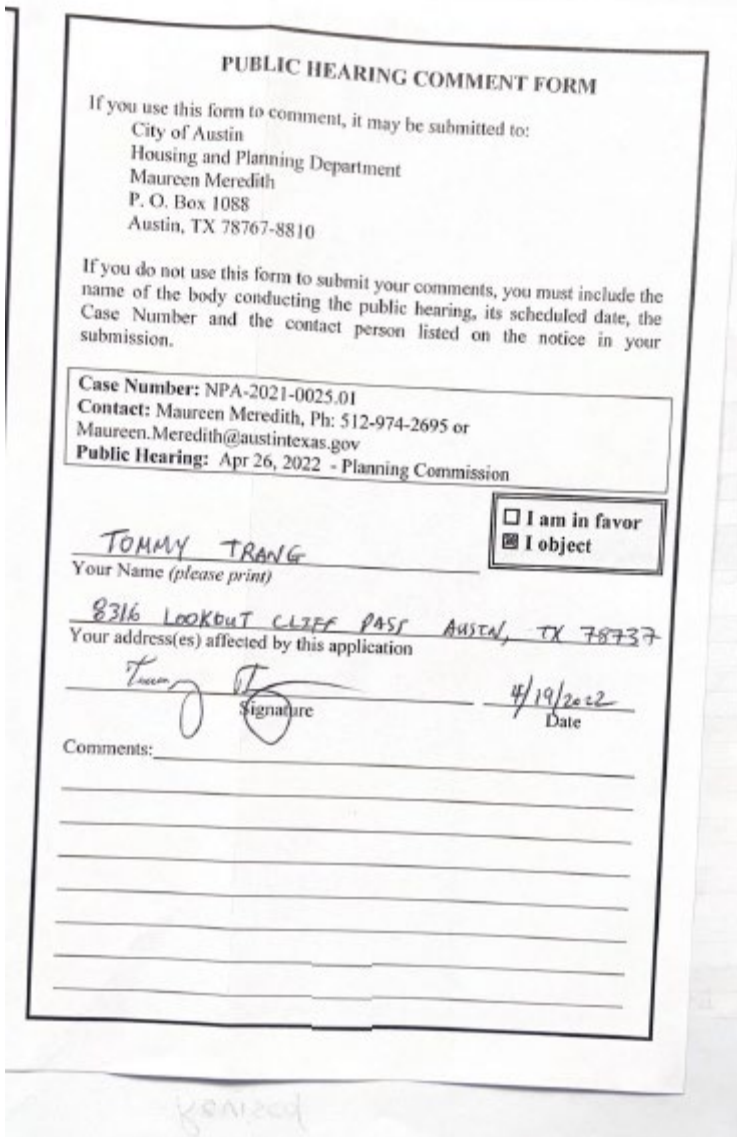 PUBLIC HEARING COMMENT FORM
If you use this form to comment, it may be submitted to:
City of Austin
Housing and Planning Department
Maureen Meredith
P. O. Box 1088
Austin, TX 78767-8810
If you do not use this form to submit your comments, you must include the
name of the body conducting the public hearing, its scheduled date, the
Case Number and the contact person listed on the notice in your
submission.
Case Number: NPA-2021-0025.01
Contact: Maureen Meredith, Ph: 512-974-2695 or
Maureen.Meredith@austintexas.gov
Public Hearing: Apr 26, 2022 - Planning Commission
☐ I am in favor
☒ I object
TOMMY TRANG
Your Name (please print)
8316 LOOKOUT CLIFF PASS AUSTIN, TX 78737
Your address(es) affected by this application
4/19/2022
Signature
Date
Comments: